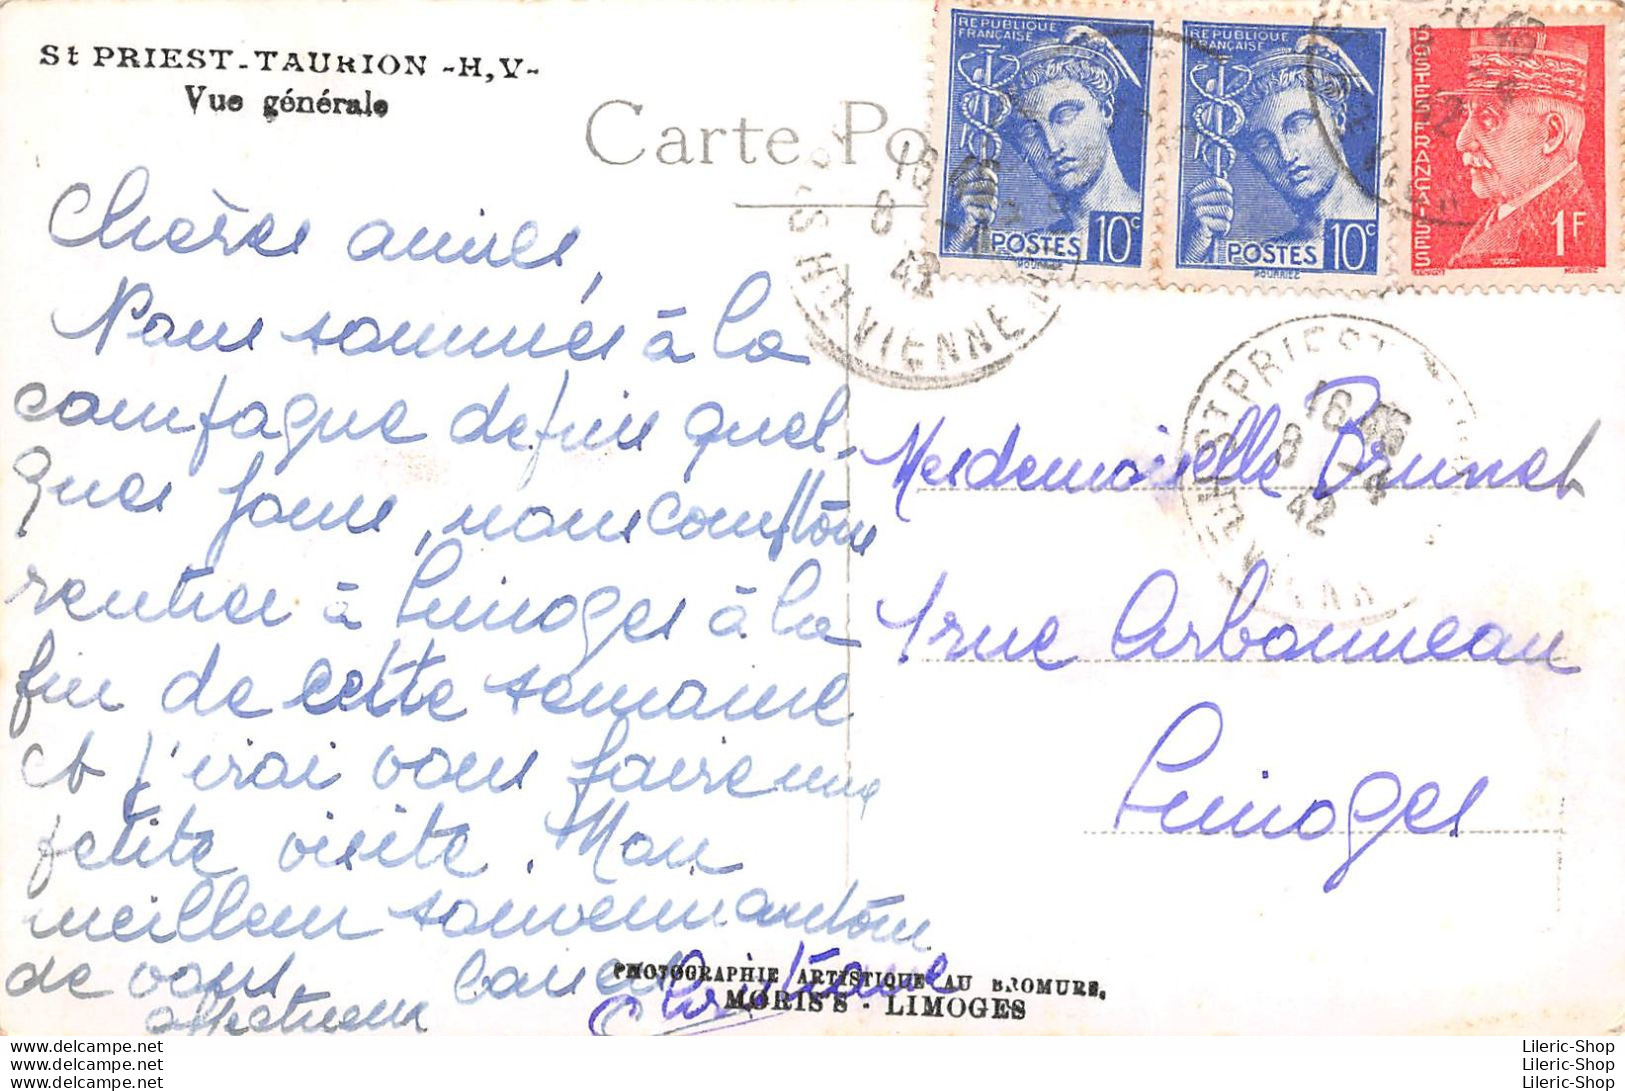 St PRIEST-TAURION -H,V-
Vue générale
Carte Po
REPUBLIQUE
FRANÇAISE
10c
POSTES
REPUBLIQUE
FRANÇAISE
10c
POSTES
POSTES FRANÇAISES
1F
16
8
42
VIENNE
ST PRIEST
16
8 -4
42
Chères amies,
Nous sommes à la
campagne depuis quel-
ques jours, nous comptons
rentrer à Limoges à la
fin de cette semaine
et j'irai vous faire une
petite visite. Mon
meilleur souvenir autour
de vous
affectueux
Christiane
Mesdemoiselle Brunet
1 rue Arbonneau
Limoges
PHOTOGRAPHIE ARTISTIQUE AU BROMURE.
MORIS'S - LIMOGES
www.delcampe.net
www.delcampe.net
www.delcampe.net
Lileric-Shop
Lileric-Shop
Lileric-Shop